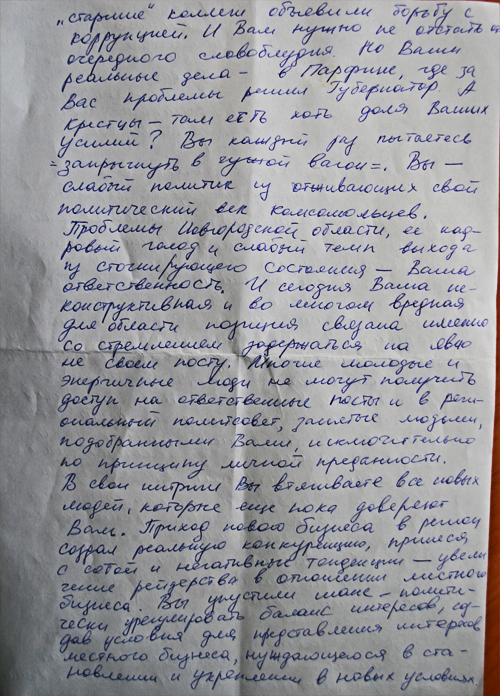 „старшие" коллеги объявили борьбу с
коррупцией. И Вам нужно не отстать от
очередного словоблудия. Но Ваши
реальные дела – в Парфине, где за
Вас проблемы решил Губернатор. А
Крестцы – там есть хоть доля Ваших
усилий? Вы каждый раз пытаетесь
=запрыгнуть в чужой вагон=. Вы –
слабый политик из отживающих свой
политический век комсомольцев.
Проблемы Новгородской области, ее кад-
ровый голод и слабый темп выхода
из стагнирующего состояния – Ваша
ответственность. И сегодня Ваша не-
конструктивная и во многом вредная
для области позиция связана именно
со стремлением задержаться на явно
не своем посту. Многие молодые и
энергичные люди не могут получить
доступ на ответственные посты и в реги-
ональный политсовет, занятые людьми,
подобранными Вами, исключительно
по принципу личной преданности.
В свои интриги Вы втягиваете все новых
людей, которые еще пока доверяют
Вам. Приход нового бизнеса в регион
создал реальную конкуренцию, принеся
с собой и негативные тенденции – увели
чение рейдерства в отношении местного
бизнеса. Вы упустили шанс – полити-
чески урегулировать баланс интересов, соз-
дав условия для представления интересов
местного бизнеса, нуждающегося в ста-
новлении и укреплении в новых условиях.